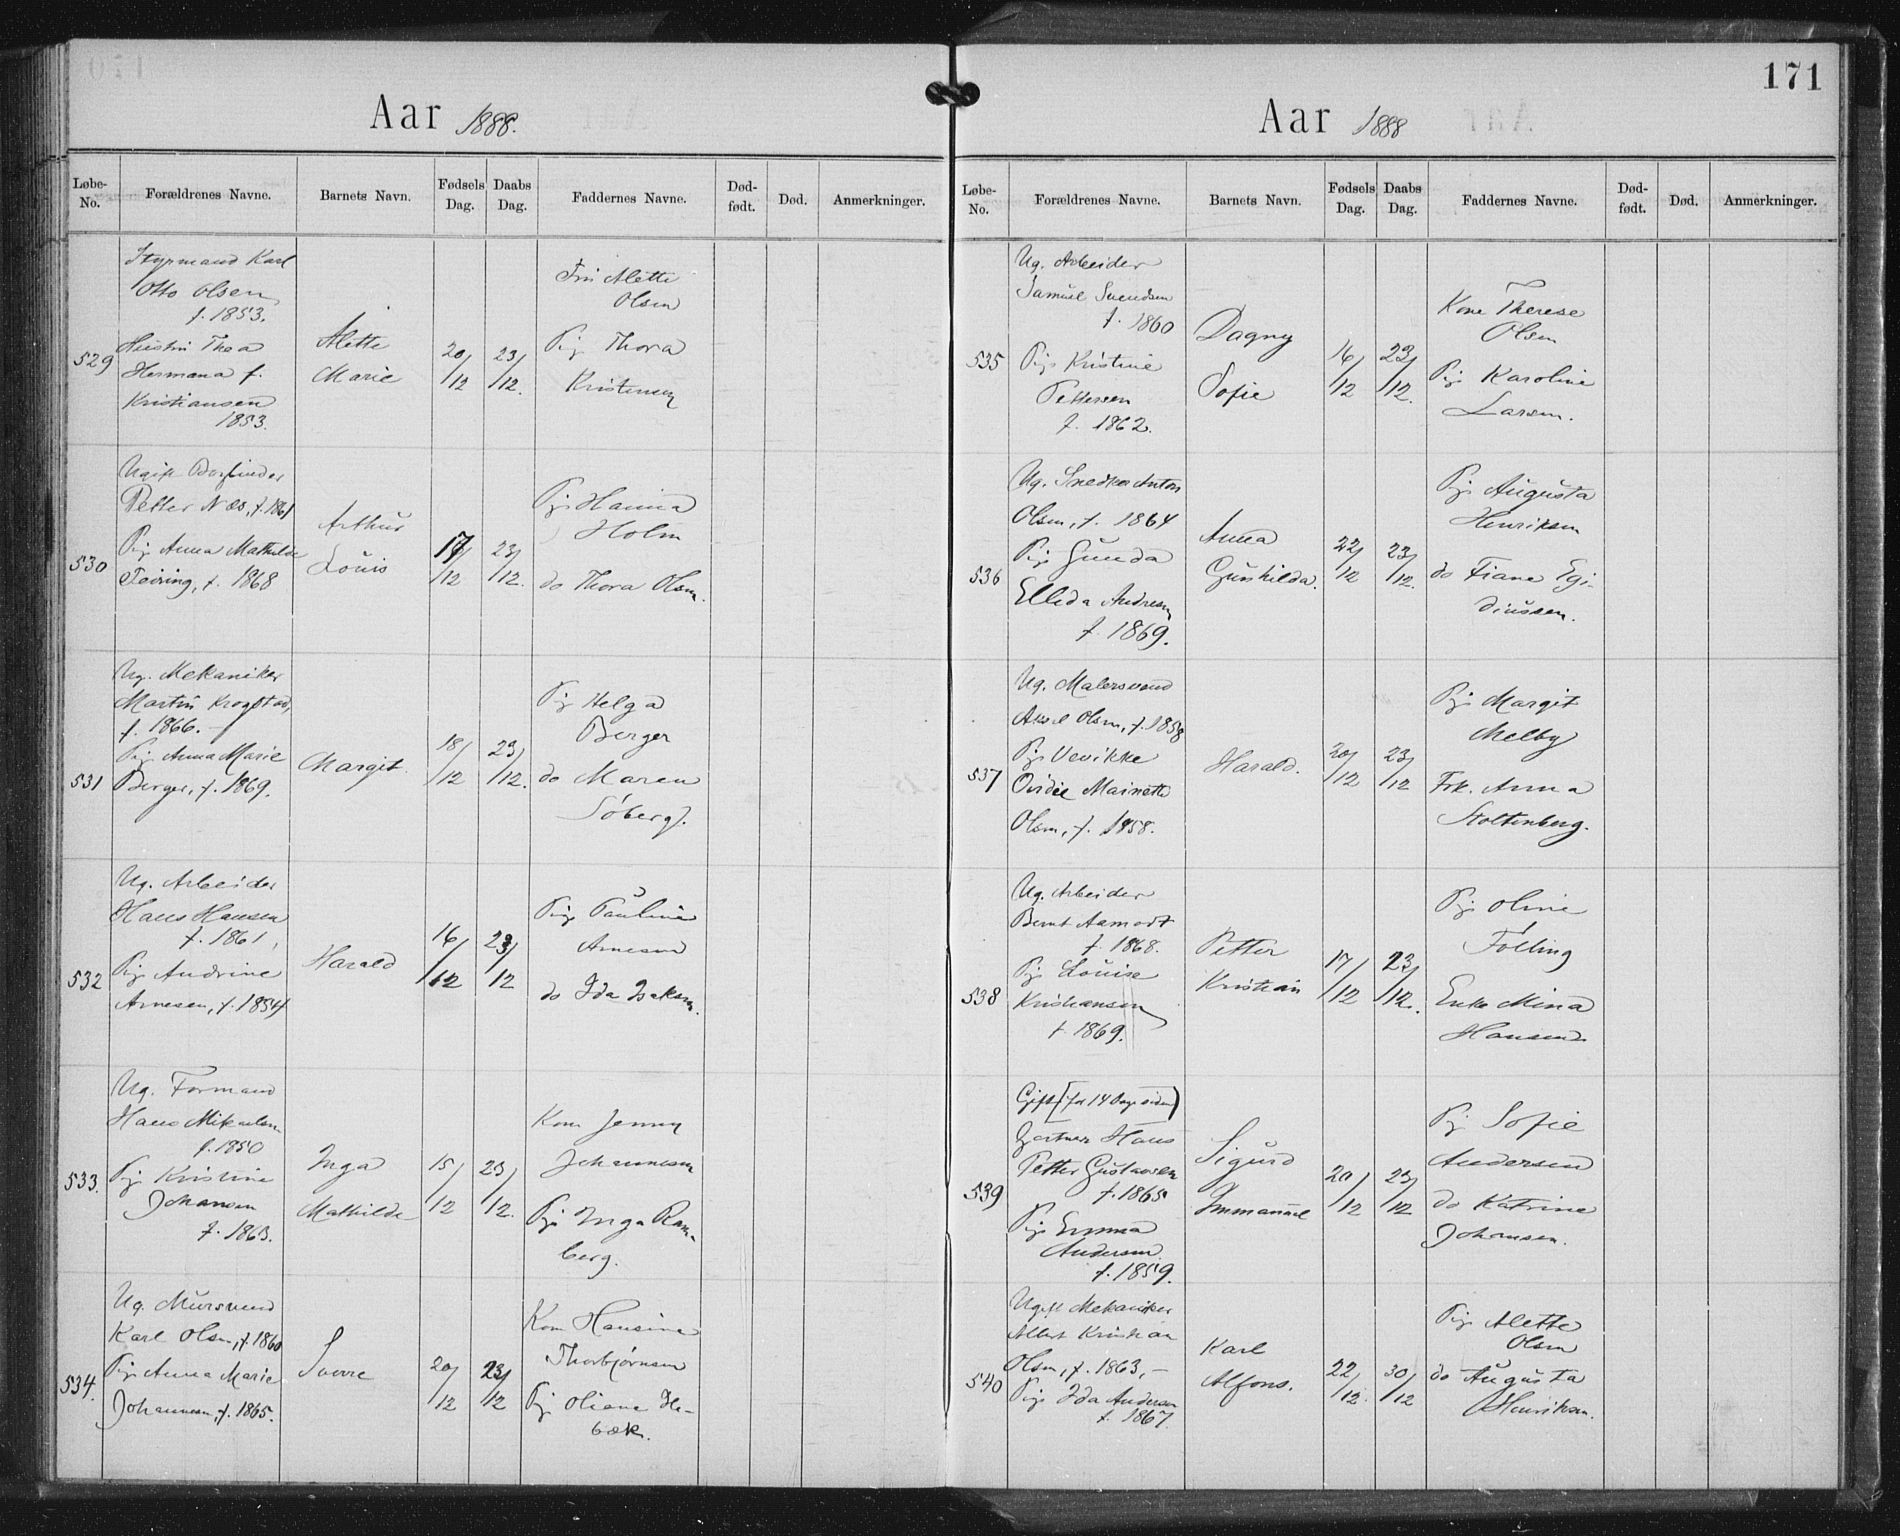 171
Aar 1888.
Løbe-No. Forældrenes Navne. Barnets Navn. Fødsels Dag. Daabs Dag. Faddernes Navne. Død-født. Død. Anmerkninger.
529
Styrmand Karl
Otto Olsen
f. 1853.
Hustru Thea
Hermana f.
Kristiansen
1853.
Alette
Marie
20/12
23/12.
Fru Alette
Olsen
Pig. Thora
Kristensen
530
Ugift
Petter Næs, f. 1861
Pig. Anna Mathilde
f. 1868
Arthur
Louis
17/12
23/12.
Pige Hanna
Holm
do Thora Olsen.
531
Ug. Mekaniker
Martin Krogstad,
f. 1866. –
Pig. Anna Marie
Berger, f. 1869.
Margit
18/12
23/12.
Pig. Helga
Berger
do Maren
Søberg.
532
Ug. Arbeider
Hans Hansen
f. 1861,
Pige Andrine
Arnesen, f. 1854
Harald
16/12
23/12
Pige Pauline
Arnesen
do Ida Isaksen.
533.
Ug. Formand
Hans Mikaelsen
f. 1850
Pige Kristine
Johansen
f. 1863.
Inga
Mathilde
15/12
23/12.
Kone Jenny
Johannesen
Pige Inga Ram-
berg.
534.
Ug. Mursvend
Karl Olsen, f. 1860
Pige Anna Marie
Johannesen, f. 1865.
Sverre
20/12
23/12
Kone Hansine
Thorbjørnsen
Pig. Oliane He-
bæk.
Aar 1888
Løbe-No. Forældrenes Navne. Barnets Navn. Fødsels Dag. Daabs Dag. Faddernes Navne. Død-født. Død. Anmerkninger.
535
Ug. Arbeider
Samuel Svendsen
f. 1860
Pige Kristine
Pettersen
f. 1862.
Dagny
Sofie
16/12
23/12.
Kone Therese
Olsen
Pig. Karoline
Larsen.
536
Ug. Snedker Anton
Olsen, f. 1864
Pige Gunda
Ellida Andresen
f. 1869.
Anna
Gunhilda.
22/12
23/12.
Pige Augusta
Henriksen
do Fiane Egi-
diussen.
537
Ug. Malersvend
Aksel Olsen, f. 1858
Pige Vevikke
Ovidie Mainette
Olsen, f. 1858.
Harald.
20/12
23/12
Pige Margit
Melby
Frk. Anna
Stoltenberg.
538
Ug. Arbeider
Bernt Aamodt
f. 1868.
Pige Louise
Kristiansen
f. 1869.
Petter
Kristian
17/12
23/12.
Pige Oline
Følling
Enke Mina
Hansen
539
Gift (for 14 Dage siden)
Gartner Hans
Petter Gustavsen
f. 1865
Pige Emma
Andersen
f. 1859.
Sigurd
Immanuel
20/12
23/12
Pig. Sofie
Andersen
do Katrine
Johansen.
540
Ugift Mekaniker
Albert Kristian
Olsen, f. 1863, –
Pige Ida Andersen
f. 1867.
Karl
Alfons.
22/12.
30/12
Pige Alette
Olsen
do Augusta
Henriksen.